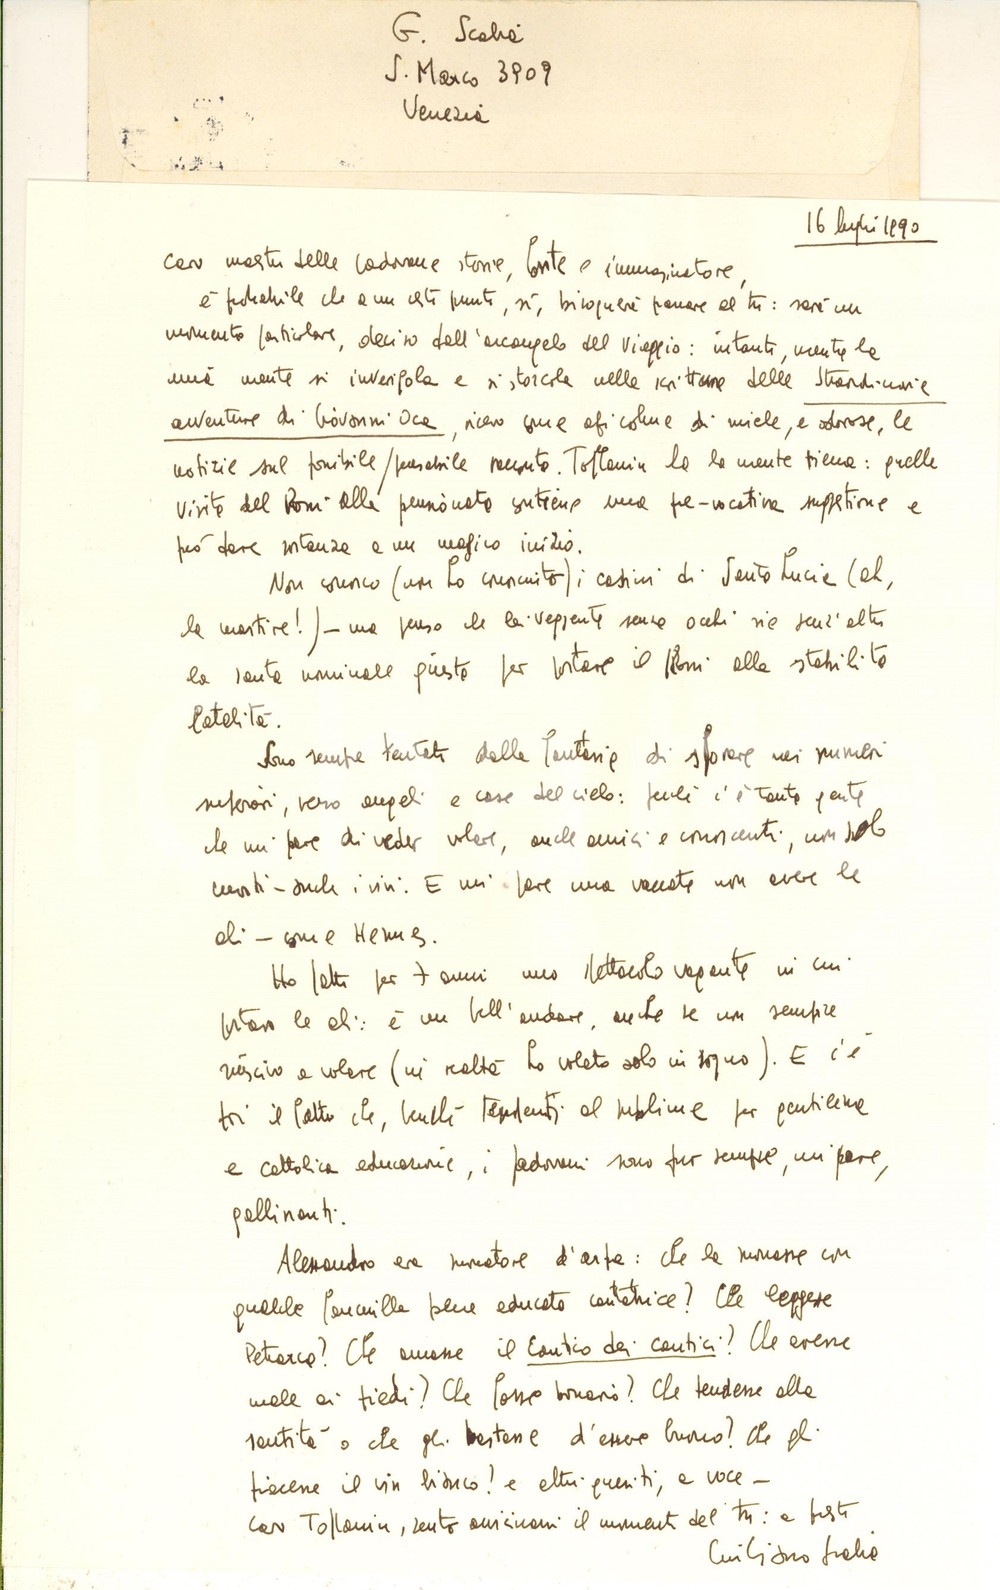 G. Scabia
S. Marco 3909
Venezia
16 luglio 1990
caro mastro delle padovane storie, fonte e immaginatore,
è probabile che a un certo punto, sì, bisognerà passare al tu: sarà un
momento particolare, deciso dall'arcangelo del viaggio: intanto, mentre la
mia mente si invirgola e si storcola nella scrittura delle Straordinarie
avventure di Giovanni Oca, ricevo come api colme di miele, e odorose, le
notizie sul possibile/passabile racconto. Toffanin ha la mente piena: quella
visita del Rossi alla pensionata contiene una pre-vocativa suggestione e
può dare sostanza a un magico inizio.
Non conosco (non ho conosciuto) i casini di Santa Lucia (ah,
la martire!) – ma penso che la veggente senza occhi sia senz'altro
la santa nominale giusta per portare il Rossi alla stabilita
fatalità.
Sono sempre tentato dalla fantasia di sforare nei numeri
superiori, verso angeli e case del cielo: perché c'è tanta gente
che mi pare di veder volare, anche amici e conoscenti, non solo
morti – anche i vivi. E mi pare una vaccata non avere le
ali – come Hermes.
Ho fatto per 7 anni uno spettacolo vagante in cui
portavo le ali: è un bell'andare, anche se non sempre
riuscivo a volare (in realtà ho volato solo in sogno). E c'è
poi il fatto che, benché tendenti al sublime per gentilezza
e cattolica educazione, i padovani sono pur sempre, mi pare,
gallinanti.
Alessandro era suonatore d'arpa: che la suonasse con
qualche fanciulla bene educata cantatrice? Che leggesse
Petrarca? Che amasse il Cantico dei cantici? Che avesse
male ai piedi? Che fosse bonario? Che tendesse alla
santità o che gli bastasse d'essere buono? Che gli
piacesse il vin bianco? e altri quesiti, a voce –
caro Toffanin, sento avvicinarsi il momento del tu: a presto
Giuliano Scabia